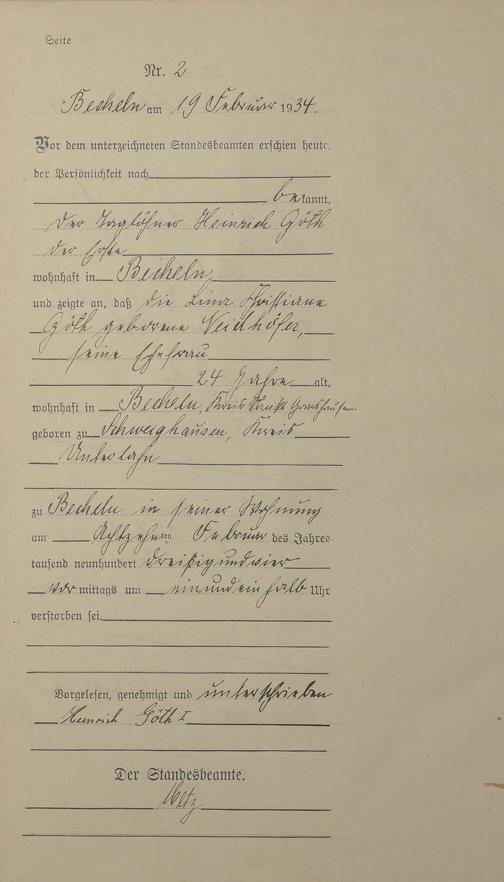 Seite
Nr. 2
Becheln am 19 Februar 1934.
Vor dem unterzeichneten Standesbeamten erschien heute,
der Persönlichkeit nach
bekannt,
der Taglöhner Heinrich Göth
der Erste
wohnhaft in Becheln,
und zeigte an, daß die Lina Christiane
Göth geborene Neidhöfer,
seine Ehefrau
24 Jahre alt,
wohnhaft in Becheln, Kreis Sankt Goarshausen
geboren zu Schweighausen, Kreis
Unterlahn
zu Becheln in seiner Wohnung
am Achtzehnten Februar des Jahres
tausend neunhundert dreißigundvier
vormittags um einundeinhalb Uhr
verstorben sei.
Vorgelesen, genehmigt und unterschrieben
Heinrich Göth I
Der Standesbeamte.
Metz